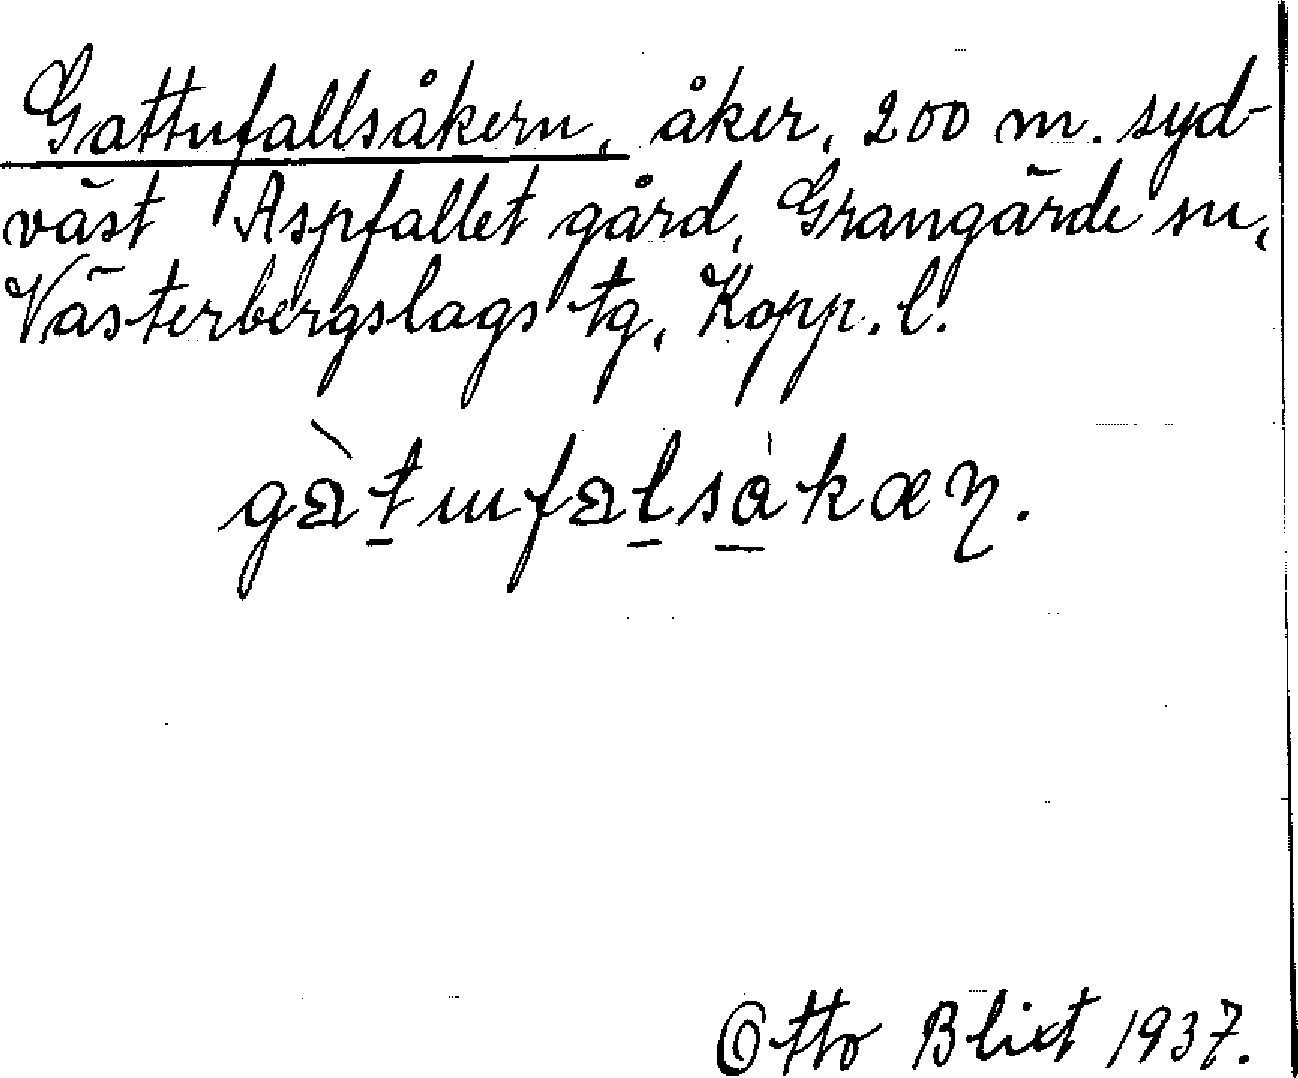 Gattufallsåkern, åker, 200 m. syd-
väst Aspfallet gård, Grangärde sn,
Västerbergslags tg, Kopp. l.
Otto Blixt 1937.